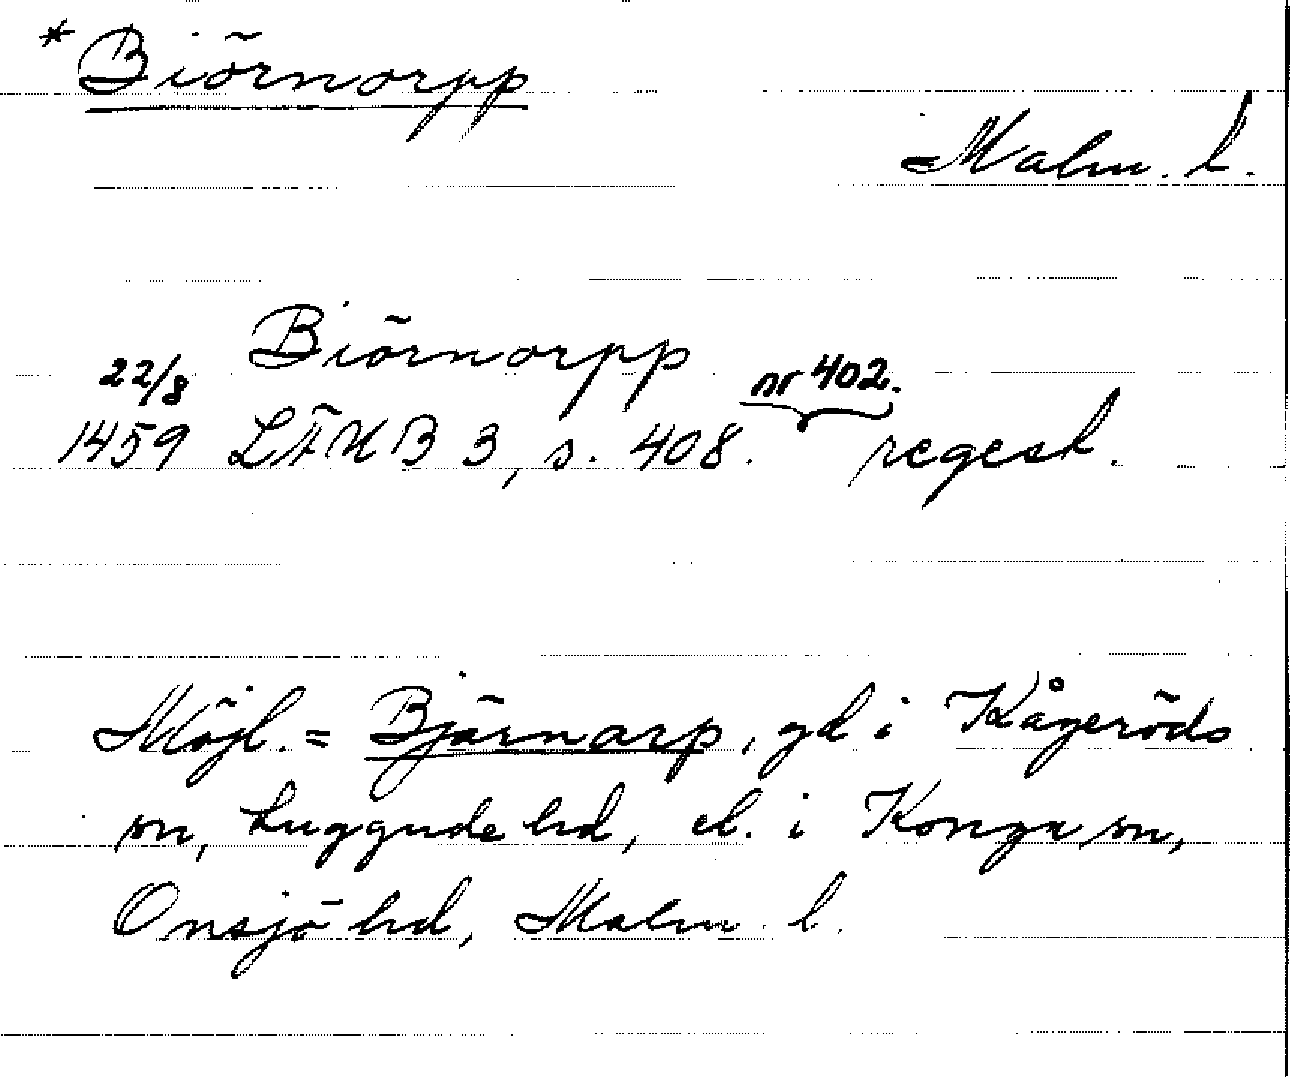 * Biörnorpp
Malm. l.
Biörnorpp
22/8 nr 402.
1459 LÄUB 3, s. 408. regest.
Möjl. = Bjärnarp, gd i Kågeröds
sn, Luggude hd, el. i Konga sn,
Onsjö hd, Malm. l.